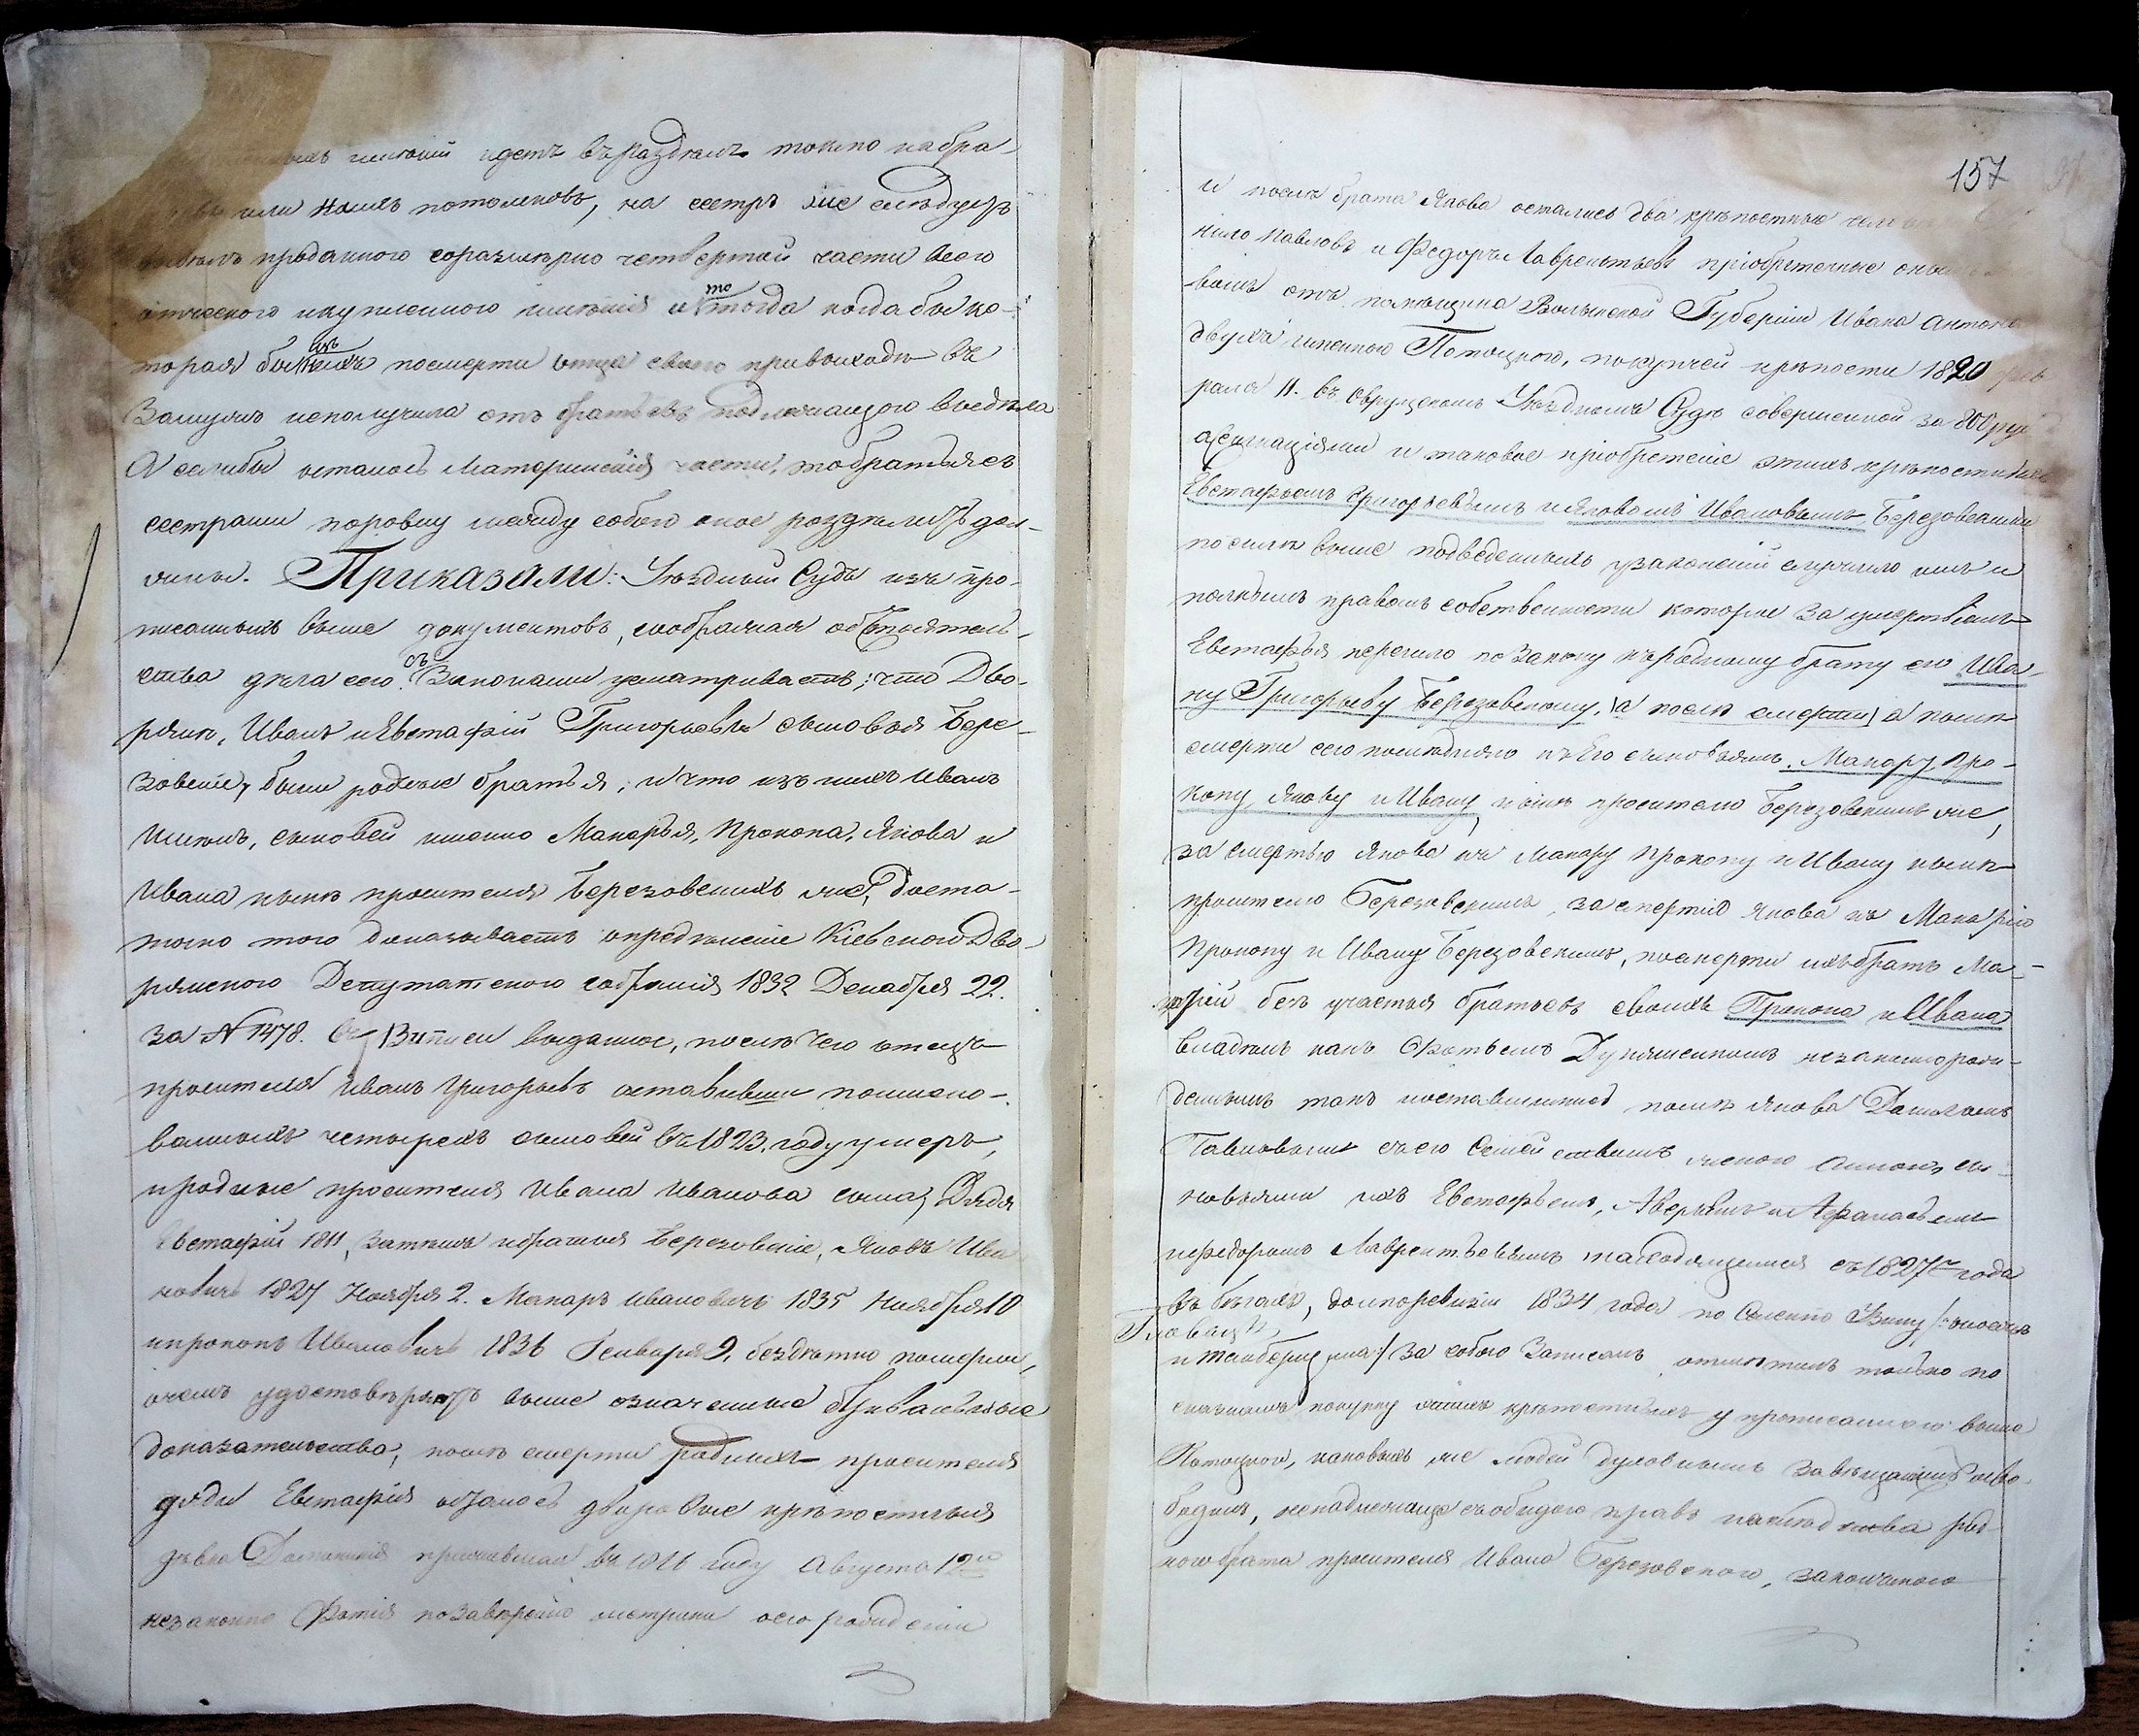 имѣній идетъ въ раздѣлъ токмо на бра-
или ихъ потомковъ, на сестръ же слѣдуетъ
приданного соразмѣрно четвертой части всего
отческого и купленного имѣнія и то тогда когда бы ко-
торая бы изъ нихъ посмерти отца своего при выходѣ въ
Замужъ неполучила отъ братьевъ надлежащого выдѣла
А еслибы осталось Материнскія части, то братья съ
сестрами поровну между собою оное раздѣлить дол-
жны. Приказали: Уѣздный Судъ изъ про-
писанныхъ выше документовъ, соображая обстоятель-
ства дѣла сего съ Законами усматриваетъ; что Дво-
ряне, Иванъ и Евстафій Григорьевы сыновья Бере-
зовскіе, были родные братья; и что изъ нихъ Иванъ
имѣлъ, сыновей именно Макарья, Прокопа, Якова и
Ивана нынѣ просителя Березовскихъ же, доста-
точно того доказываетъ опредѣленіе Кіевского Дво-
рянского Депутатского собранія 1832 Декабря 22.
за № 1478. выданное, послѣ чего отецъ
просителя Иванъ Григорьевъ оставивши поимено-
ванныхъ четырехъ сыновей въ 1823. году умеръ,
и родные просителя Ивана Иванова сына, Дядя
Евстафій 1811, затѣмъ и братья Березовскіе, Яковъ Ива-
новичъ 1827 Ноября 2. Макаръ Ивановичъ 1835 Ноября 10
и Прокопъ Ивановичъ 1836 Генваря 9, бездѣтно померли,
о чемъ удостовѣряютъ выше означенные
доказательства, послѣ смерти родныхъ просителя
дяди Евстафія осталось дворовые крѣпостныя
дѣвка въ году Августа 12го
незаконно Фотія по завѣренію метрики о его рожденіи
157
и послѣ брата Якова остались два крѣпостные
нило Павловъ и Федоръ Лаврентьевъ пріобрѣтенные
вымъ отъ помѣщика Волынской Губерніи Ивана Антоно
двухъ именного Потоцкого, покупчей крѣпости 1820
раля 11. въ Овруцкомъ Уѣздномъ Судѣ совершенной за 800 руб
асигнаціями и таковое пріобретеніе этихъ крѣпостныхъ
Евстафьемъ Григорьевымъ и Яковомъ Ивановымъ Березовскими
по силѣ выше подведенныхъ узаконеній служило имъ и
полнымъ правомъ собственности которое за умертвіемъ
Евстафья перешло по Закону къ родному брату его Ива-
ну Григорьеву Березовскому, (а послѣ смерти) а послѣ
смерти сего послѣдняго къ Его сыновьямъ. Макару, Про-
копу, Якову и Ивану нынѣ просителю Березовскимъ же,
за смертью Якова къ Макару Прокопу и Ивану нынѣ
просителю Березовскимъ, за смертію Якова къ Макарію
Прокопу и Ивану Березовскимъ, посмерти ихъ братъ Ма-
карій безъ участья братьевъ своихъ Прокопа и Ивана
владѣлъ какъ Фотьемъ незаконнорож-
деннымъ такъ и оставшимися послѣ Якова Даниломъ
Павловымъ съ его Семействомъ женою сы-
новьями ихъ Евстафьемъ, Аверьяномъ и Афанасьемъ
и Федоромъ Лаврентьевымъ находящимся съ 1827го года
въ бѣгахъ, 1834 года по Селенію
Головацъ
за собою Записалъ, отмѣтилъ только по
сказкамъ покупку этихъ крѣпостныхъ у прописанного выше
Потоцкого, каковыхъ же людей духовнымъ завѣщаніемъ осво-
бодилъ, ненадлежаще съ обидою правъ наслѣдства род-
ного брата просителя Ивана Березовского, законного